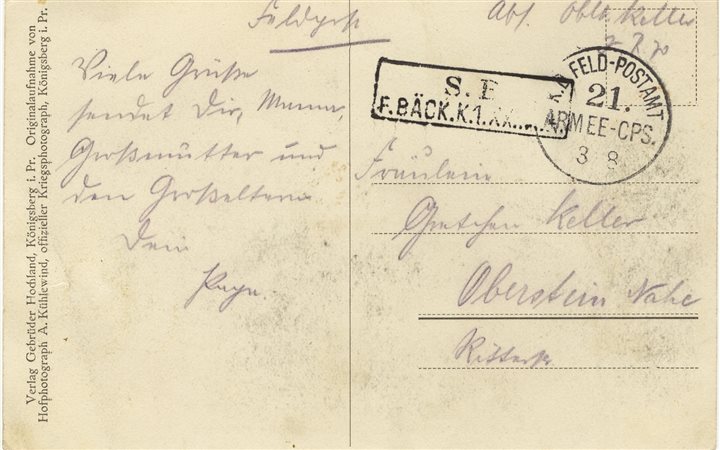 Feldpost
Abs. Oblt. Keller
Viele Grüße
sendet Dir, Mama,
Großmutter und
den Großeltern
Dein
Papa.
S. B.
F. BÄCK. K. 1. XX
FELD-POSTAMT
21.
ARMEE-CPS.
3 8
Fräulein
Gretchen Keller
Oberstein Nahe
Verlag Gebrüder Hochland, Königsberg i. Pr. Originalaufnahme von
Hofphotograph A. Kühlewind, offizieller Kriegsphotograph, Königsberg i. Pr.